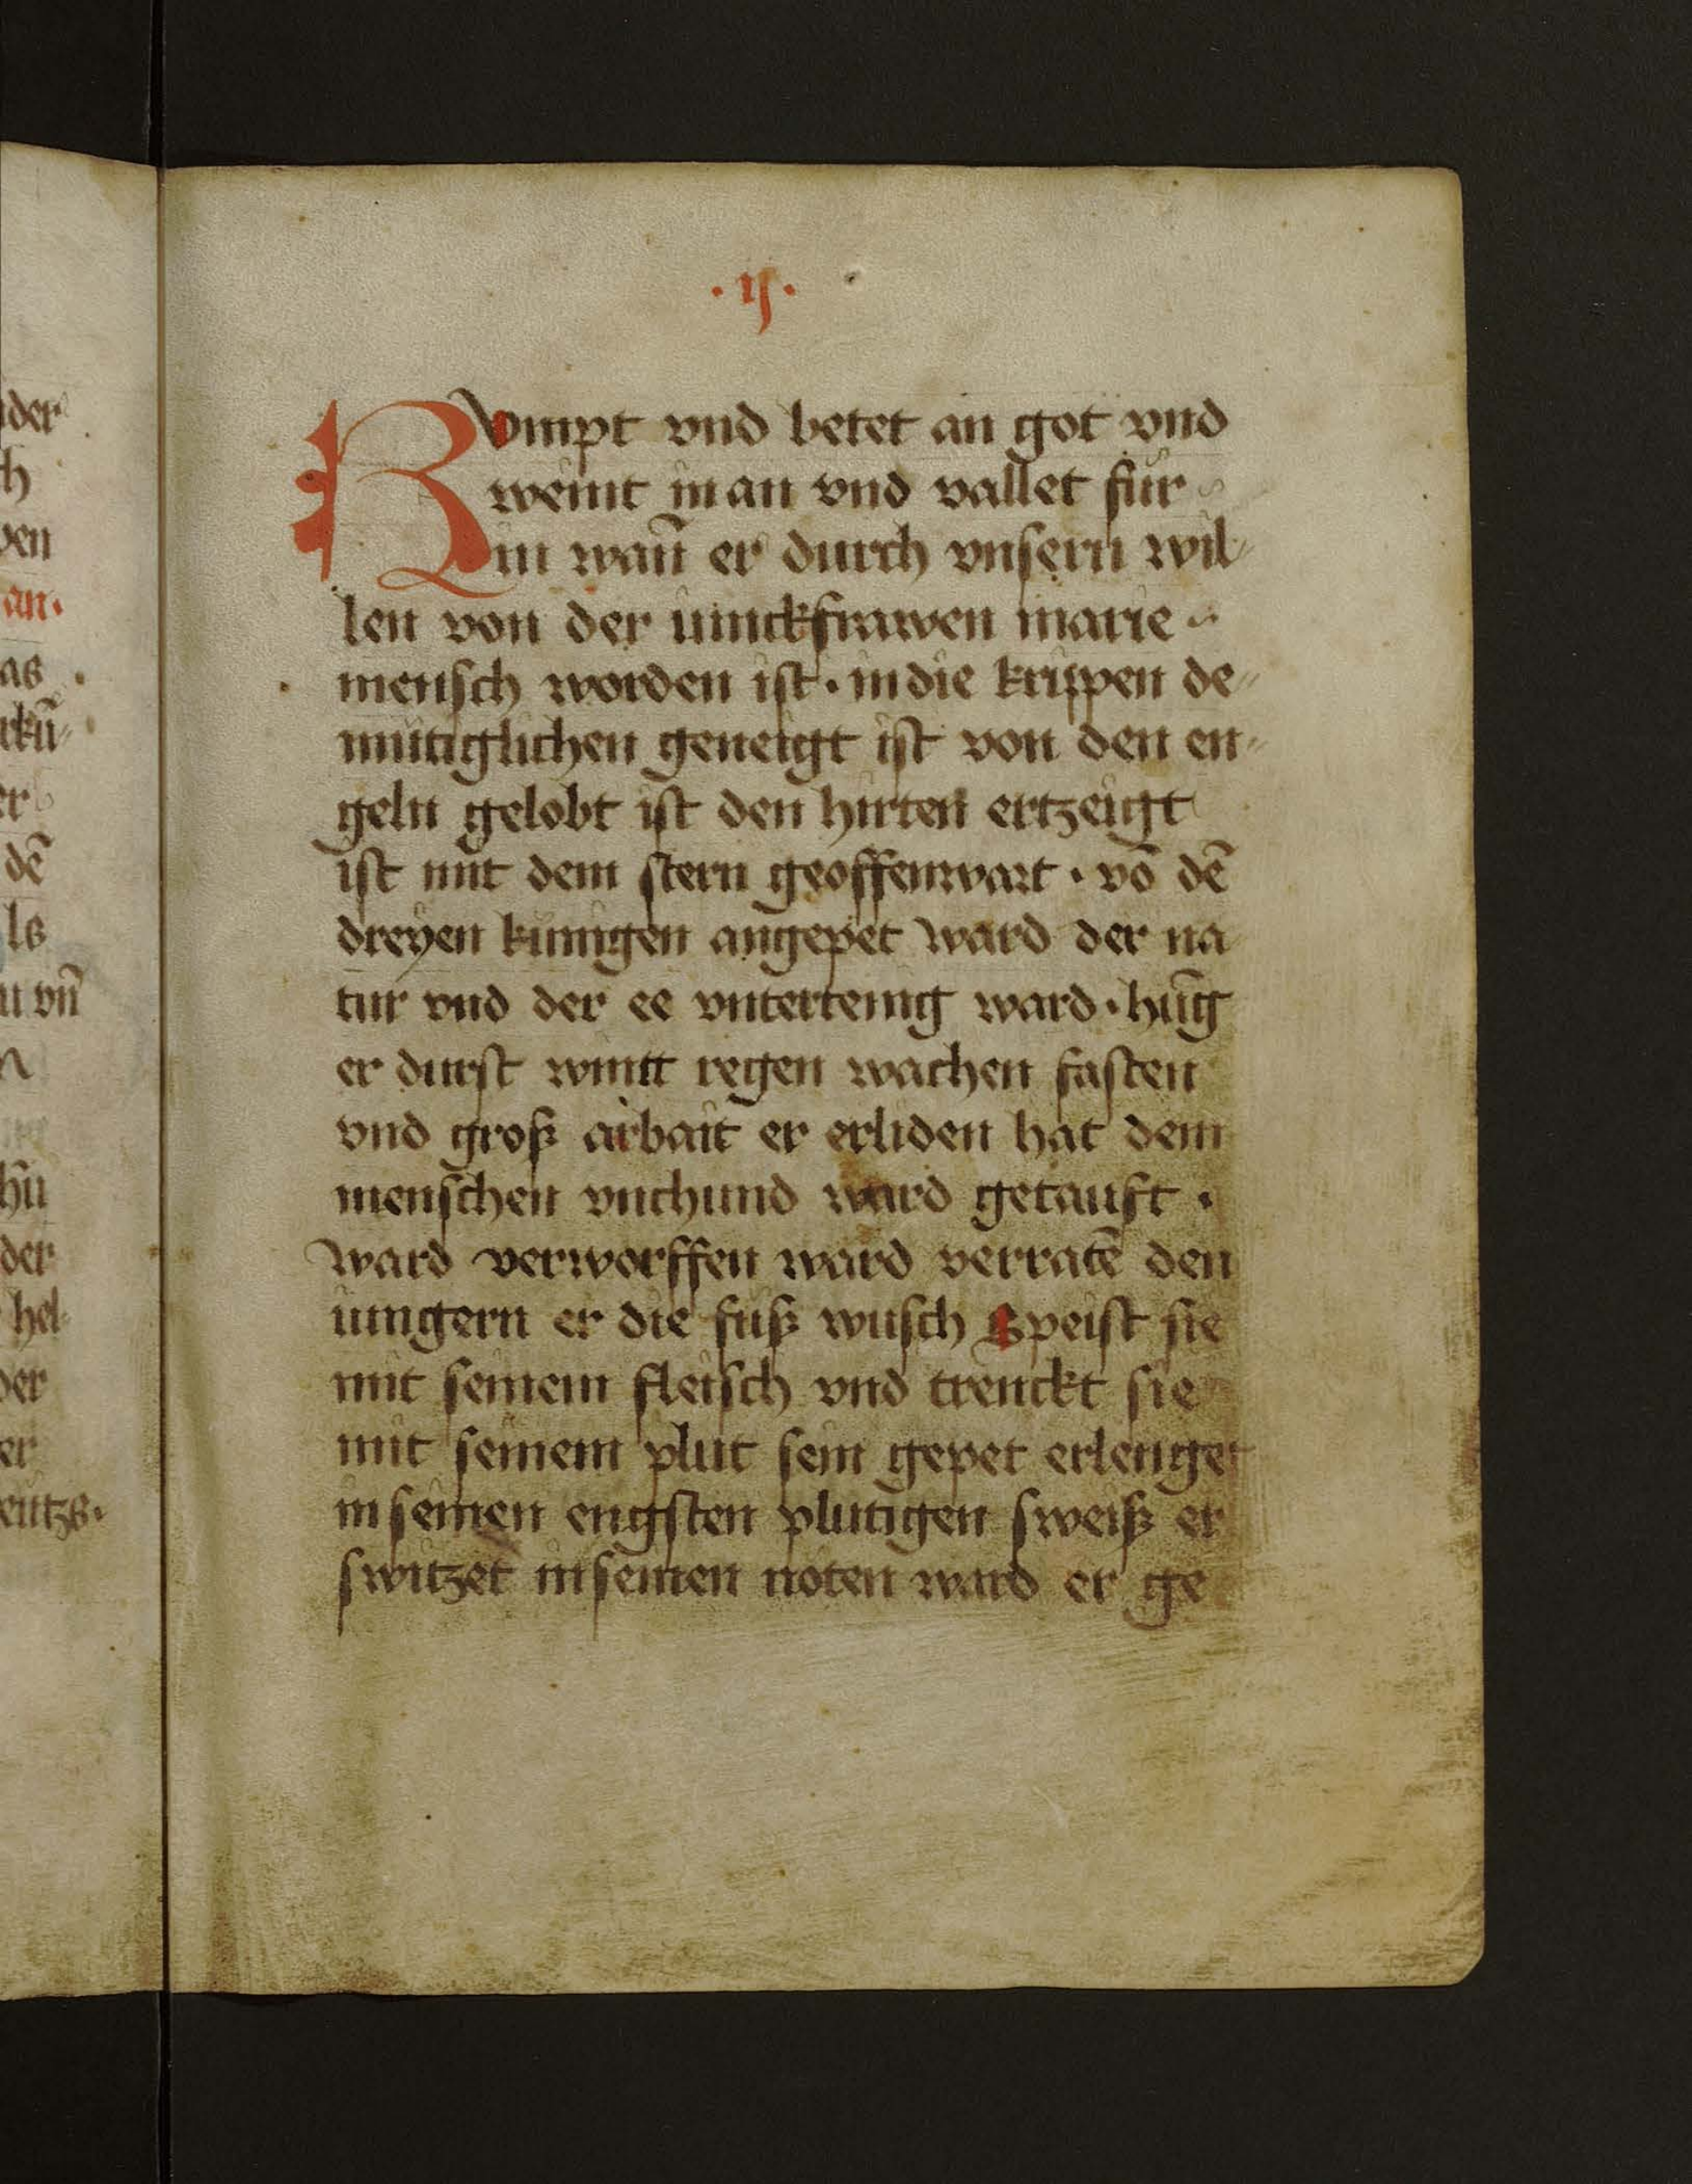 der
h
ben
an.
as .
rkū
er
dē
ls
u vn̄
n
hn
der
hel
der
er
entzs.
.ij.
Kompt vnd betet an got vnd
weint in an vnd vallet für
in wan̄ er durch vnsern wil
len von der iunckfrawen marie
mensch worden ist · in die krippen de
mütiglichen geneigt ist von den en
geln gelobt ist den hirten ertzeigt
ist mit dem stern geoffenwart · vō dē
dreyen kunigen angepet ward der na
tur vnd der ee vntertenig ward · hūg
er durst wintt regen wachen fasten
vnd groß arbait er erliden hat dem
menschen vnchund ward getauft ·
ward verworffen ward verratē den
iungern er die fuß wusch Speist sie
mit seinem fleisch vnd trenckt sie
mit seinem plut sein gepet erlenget
in seinen engsten plutigen sweiß er
switzet in seinen noten ward er ge